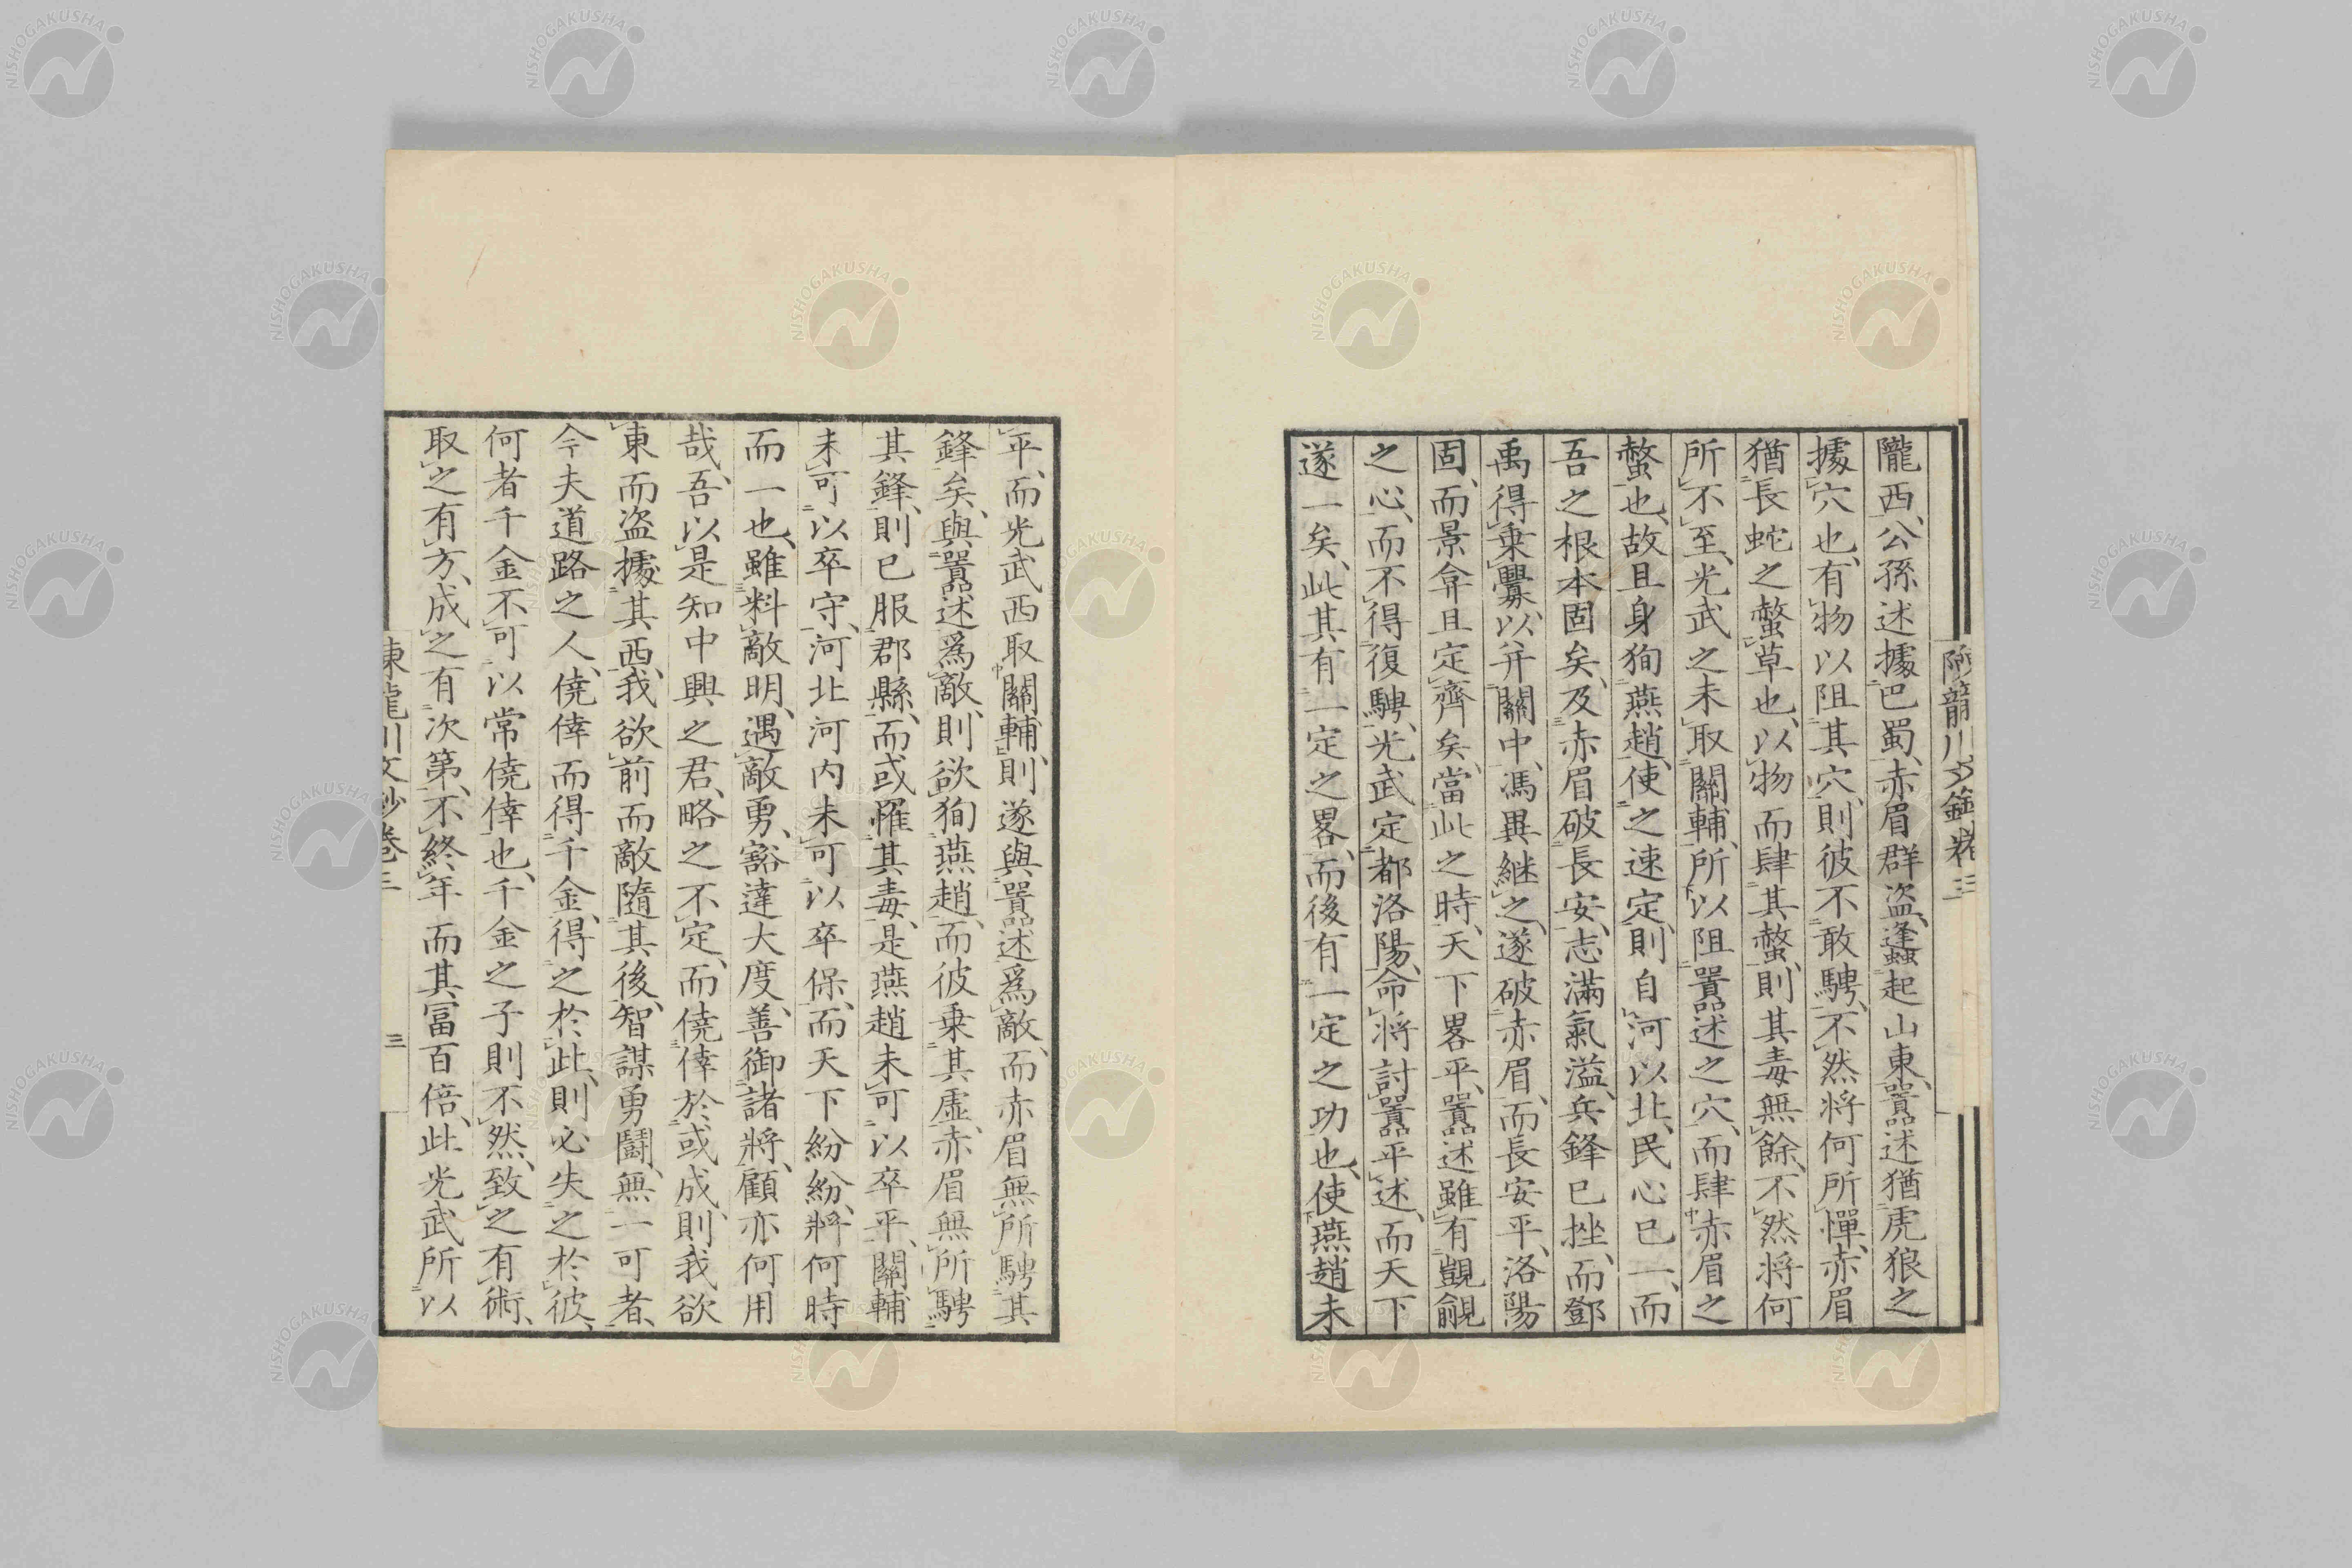 隴西、公孫述據巴蜀、赤眉群盜、蜂起山東、囂述猶虎狼之
據穴也、有物以阻其穴、則彼不敢騁、不然將何所憚、赤眉
猶長蛇之螫草也、以物而肆其螫、則其毒無餘、不然將何
所不至、光武之未取關輔、所以阻囂述之穴、而肆赤眉之
螫也、故且身狥燕趙、使之速定、則自河以北、民心已一、而
吾之根本固矣、及赤眉破長安、志滿氣溢、兵鋒已挫、而鄧
禹得乗釁、以并關中、馮異継之、遂破赤眉、而長安平、洛陽
固、而景弇且定齊矣、當此之時、天下畧平、囂述雖有覬覦
之心、而不得復騁、光武定都洛陽、命將討囂平述、而天下
遂一矣、此其有一定之畧、而後有一定之功也、使燕趙未
平、而光武西取關輔、則遂與囂述爲敵、而赤眉無所騁其
鋒矣、與囂述爲敵、則欲狥燕趙、而彼乗其虚、赤眉無所騁
其鋒、則已服郡縣、而或罹其毒、是燕趙未可以卒平、關輔
未可以卒守、河北河内未可以卒保、而天下紛紛、將何時
而一也、雖料敵明、遇敵勇、豁達大度、善御諸將、顧亦何用
哉、吾以是知中興之君、略之不定、而僥倖於或成、則我欲
東而盜據其西、我欲前而敵隨其後、智謀勇鬪、無一可者、
今夫道路之人、僥倖而得千金、得之於此、則必失之於彼、
何者千金不可以常僥倖也、千金之子則不然、致之有術、
取之有方、成之有次第、不終年而其富百倍、此光武所以
陳龍川文鈔卷三
三